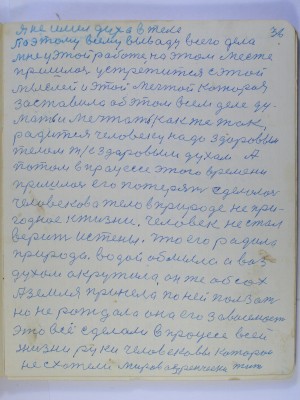 36
я не имел духа в теле
Поэтому всему выводу всего дела
мне у этой работе на этом месте
пришлось устретится с этой
мыслей и этой мечтой которая
заставила об этом всем деле ду-
мать и мечтать как же так,
радится человеку надо здоровым
телом т/к здоровым духом А
потом в працессе этого времени
пришлось его потерять сделалося
человеково тело в природе не при-
годное к жизни. Человек не стал
верить истены, что его радила
природа водой обмыла и воз
духом окружила, он же обсох
А земля приняла по ней ползать
но не рождала она его зависемост
это всё сделали в процессе всей
жизни руки человековы которые
не схотели жить